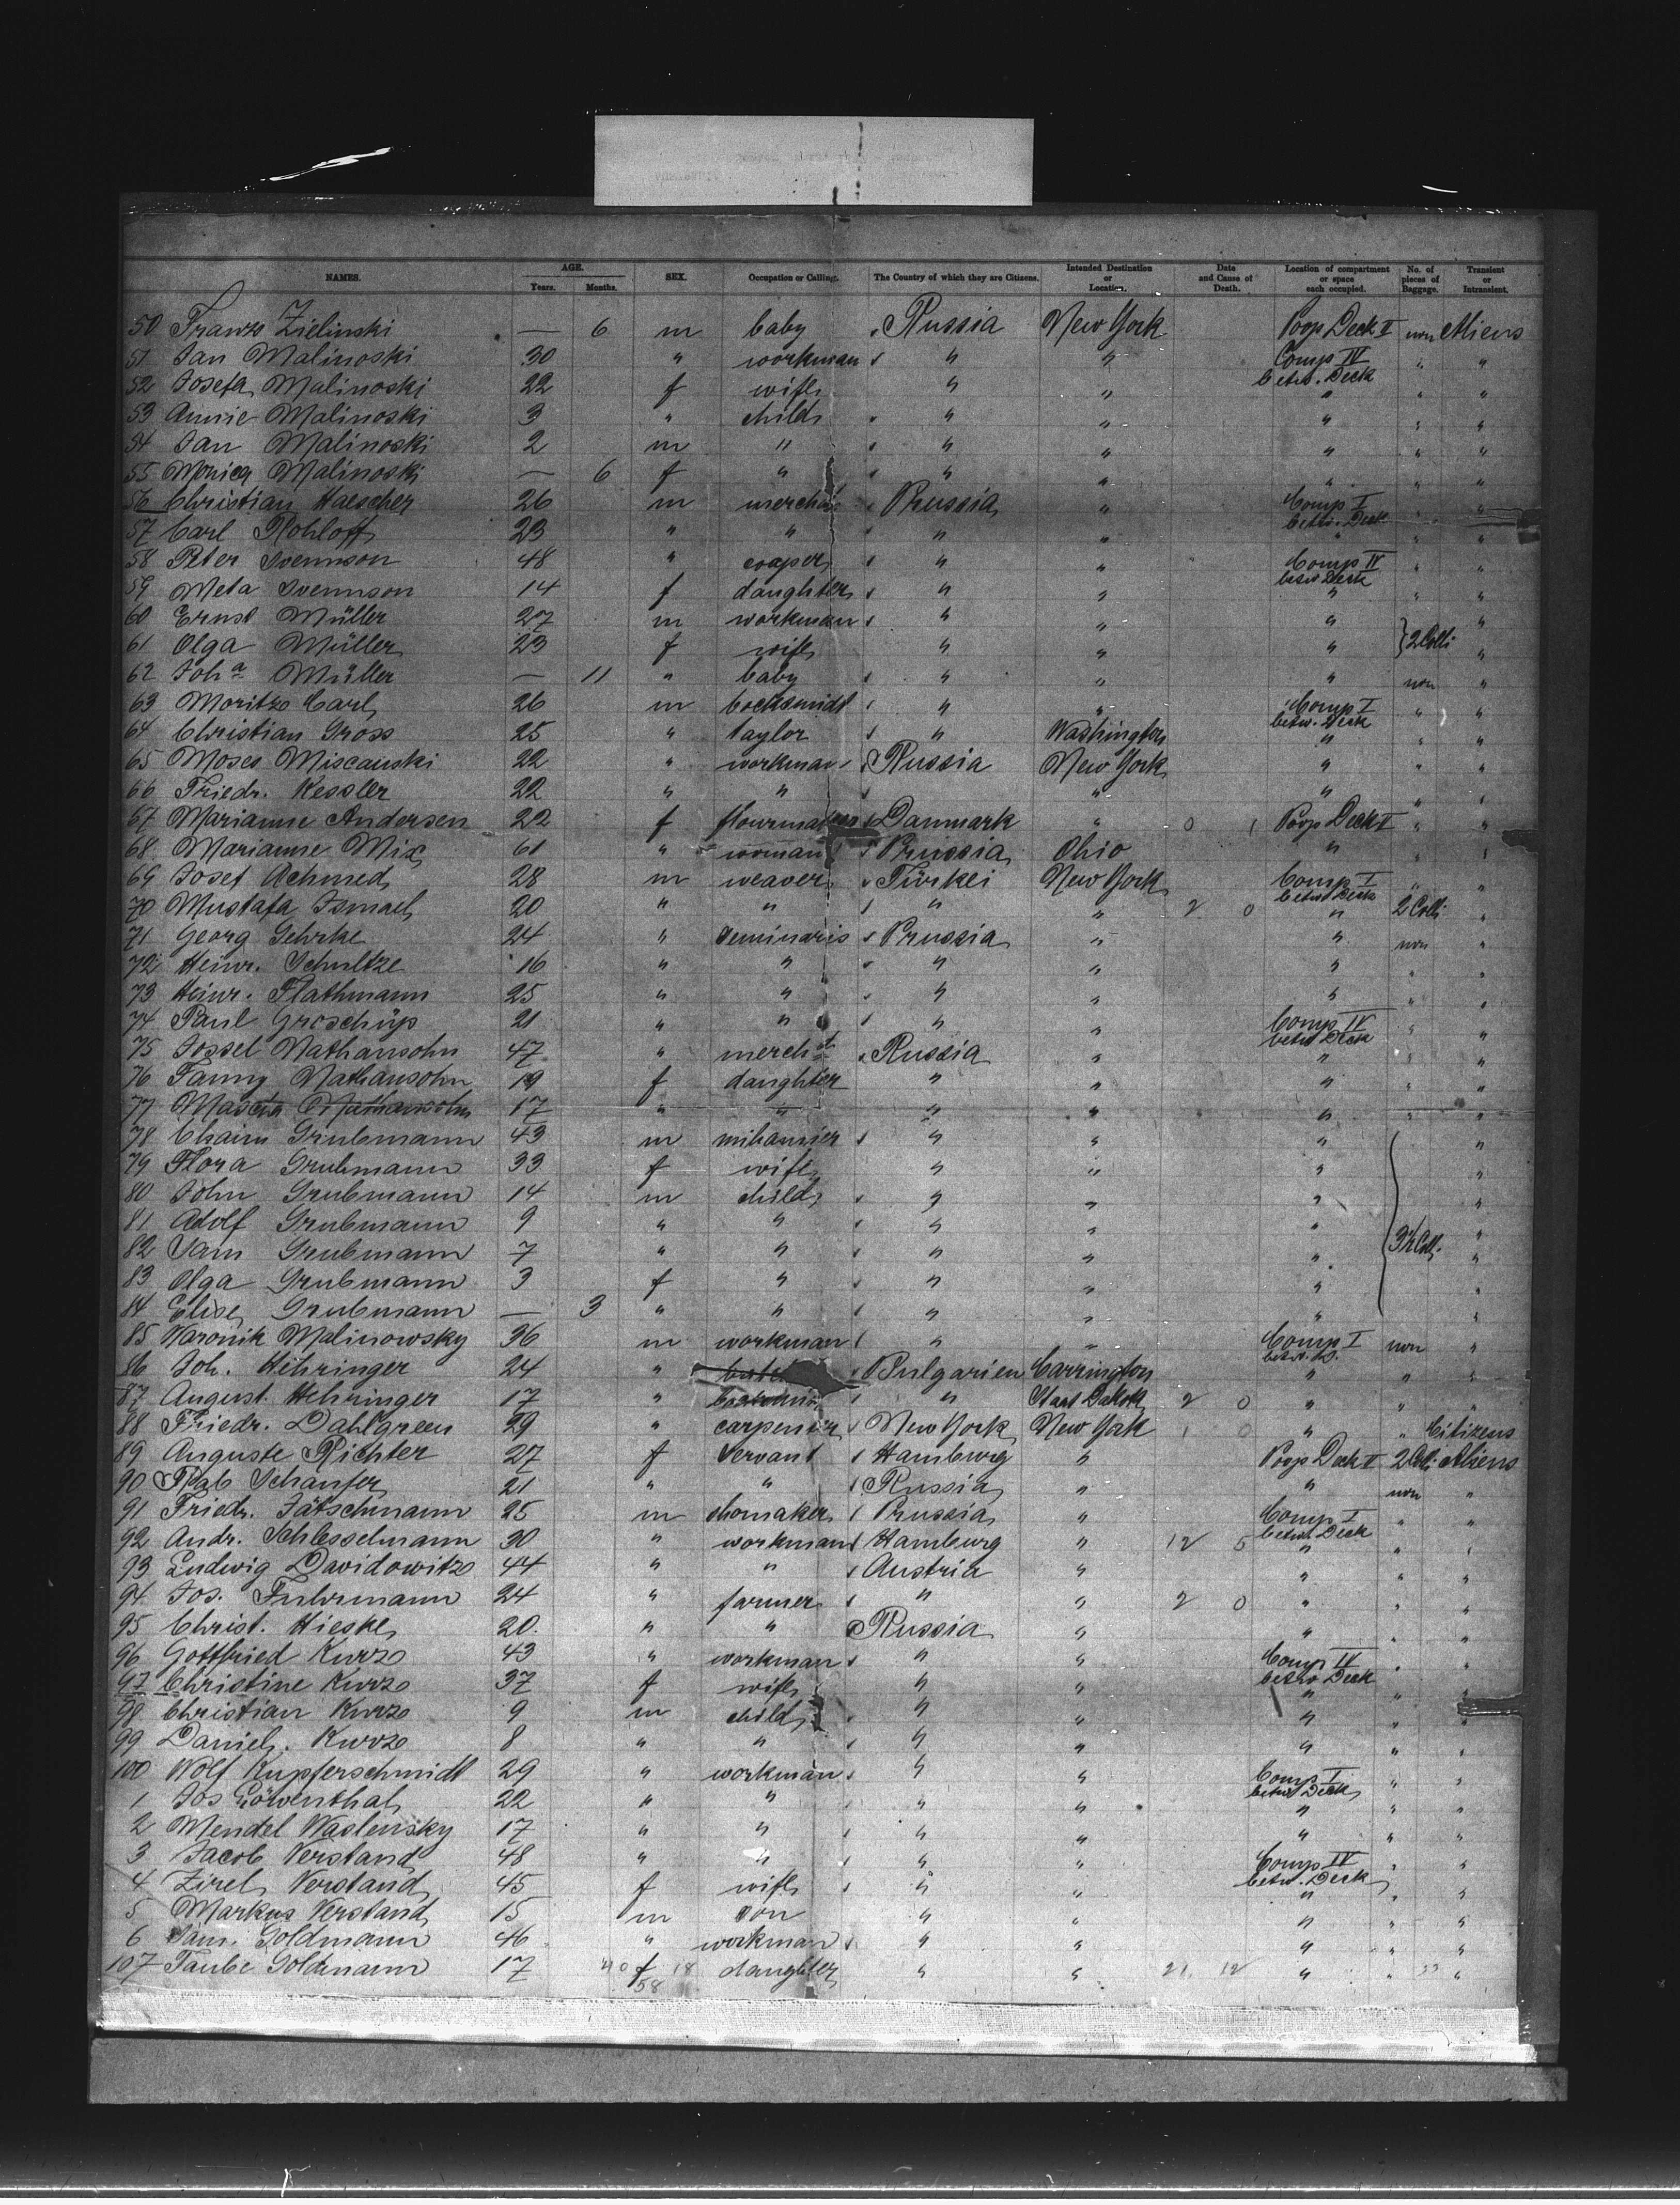 NAMES. AGE. Years. Months. SEX. Occupation or Calling. The Country of which they are Citizens. Intended Destination or Location. Date and Cause of Death. Location of compartment or space each occupied. No. of pieces of Baggage. Transient or Intransient.
50 Franz Zielinski — 6 m baby Russia New York Poop Deck II non Aliens
51 Jan Malinoski 30 " workman " " Comp IV betw. Deck " "
52 Josefa Malinoski 22 f wife " " " " "
53 Annie Malinoski 3 " child " " " " "
54 Jan Malinoski 2 m " " " " " "
55 Monica Malinoski — 6 f " " " " " "
56 Christian Haescher 26 m mercht Prussia " Comp I betw. Deck " "
57 Carl Rohloff 23 " " " " " " "
58 Peter Svennson 48 " cooper " " Comp IV betw Deck " "
59 Meta Svennson 14 f daughter " " " " "
60 Ernst Müller 27 m workman " " " "
61 Olga Müller 23 f wife " " " 2 Colli "
62 Joh a Müller — 11 " baby " " " non "
63 Moritz Carl 26 m bocksmidt " " Comp I betw. Deck " "
64 Christian Gross 25 " taylor " Washington " " "
65 Moses Miscauski 22 " workman Russia New York " " "
66 Friedr. Kessler 22 " " " " " "
67 Marianne Andersen 22 f Danmark " 0 1 Poop Deck II " "
68 Marianne Mix 61 " woman Prussia Ohio " " "
69 Josef Achmed 28 m weaver Türkei New York Comp I betw Deck " "
70 Mustafa Ismael 20 " " " " 2 0 " 2 Colli "
71 Georg Gehrke 24 " seminaris Prussia " " non "
72 Heinr. Schultze 16 " " " " " " "
73 Heinr. Flathmann 25 " " " " " " "
74 Paul Groschüp 21 " " " " Comp IV betw Deck " "
75 Jossel Nathansohn 47 " mercht Russia " " " "
76 Fanny Nathansohn 19 f daughter " " " " "
77 Mascia Nathansohn 17 " " " " " " "
78 Chaim Grubmann 43 m mihanzier " " " "
79 Flora Grubmann 33 f wife " " " "
80 John Grubmann 14 m child " " " "
81 Adolf Grubmann 9 " " " " " "
82 Sam Grubmann 7 " " " " " 3½ Coll. "
83 Olga Grubmann 3 f " " " " "
84 Elise Grubmann — 3 " " " " " "
85 Waronik Malinowsky 36 m workman " " Comp I betw. D. non "
86 Joh. Hehringer 24 " Bulgarien Carrington " " "
87 August Hehringer 17 " " Staat Dakota 2 0 " " "
88 Friedr. Dahlgreen 29 " carpenter New York New York 1 0 " " Citizens
89 Auguste Richter 27 f servant Hamburg " Poop Deck II 2 Colli Aliens
90 Schaufer 21 " " Russia " " non "
91 Friedr. Jätschmann 25 m shomaker Prussia " Comp I betw. Deck " "
92 Andr. Schlesselmann 30 " workman Hamburg " 12 5 " " "
93 Ludwig Davidowitz 44 " " Austria " " " "
94 Jos. Fuhrmann 24 " farmer " " 2 0 " " "
95 Christ. Hieske 20 " " Russia " " " "
96 Gottfried Kurz 43 " workman " " Comp IV betw Deck " "
97 Christine Kurz 37 f wife " " " " "
98 Christian Kurz 9 m child " " " " "
99 Daniel Kurz 8 " " " " " " "
100 Wolf Kupferschmidt 29 " workman " " Comp I betw Deck " "
1 Jos Löwenthal 22 " " " " " " "
2 Mendel Waslensky 17 " " " " " " "
3 Jacob Verstand 48 " " " " Comp IV betw. Deck " "
4 Zirel Verstand 45 f wife " " " " "
5 Markus Verstand 15 m son " " " " "
6 Sam. Goldmann 46 " workman " " " " "
107 Taube Goldmann 17 40 f 18 daughter " " 21 12 " " 33 "
58